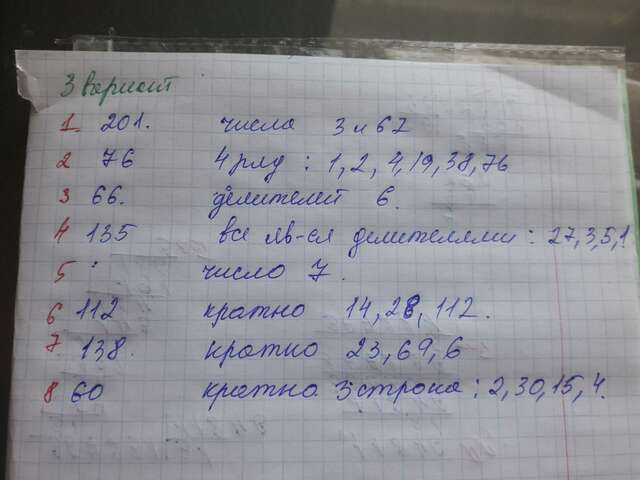 3 вариант
1 201. числа 3 и 67
2 76 4 ряд : 1, 2, 4, 19, 38, 76
3 66. делителей 6.
4 135 все яв-ся делителями : 27, 3, 5, 1.
5 число 7.
6 112 кратно 14, 28, 112.
7 138. кратно 23, 69, 6
8 60 кратна 3 строка : 2, 30, 15, 4.